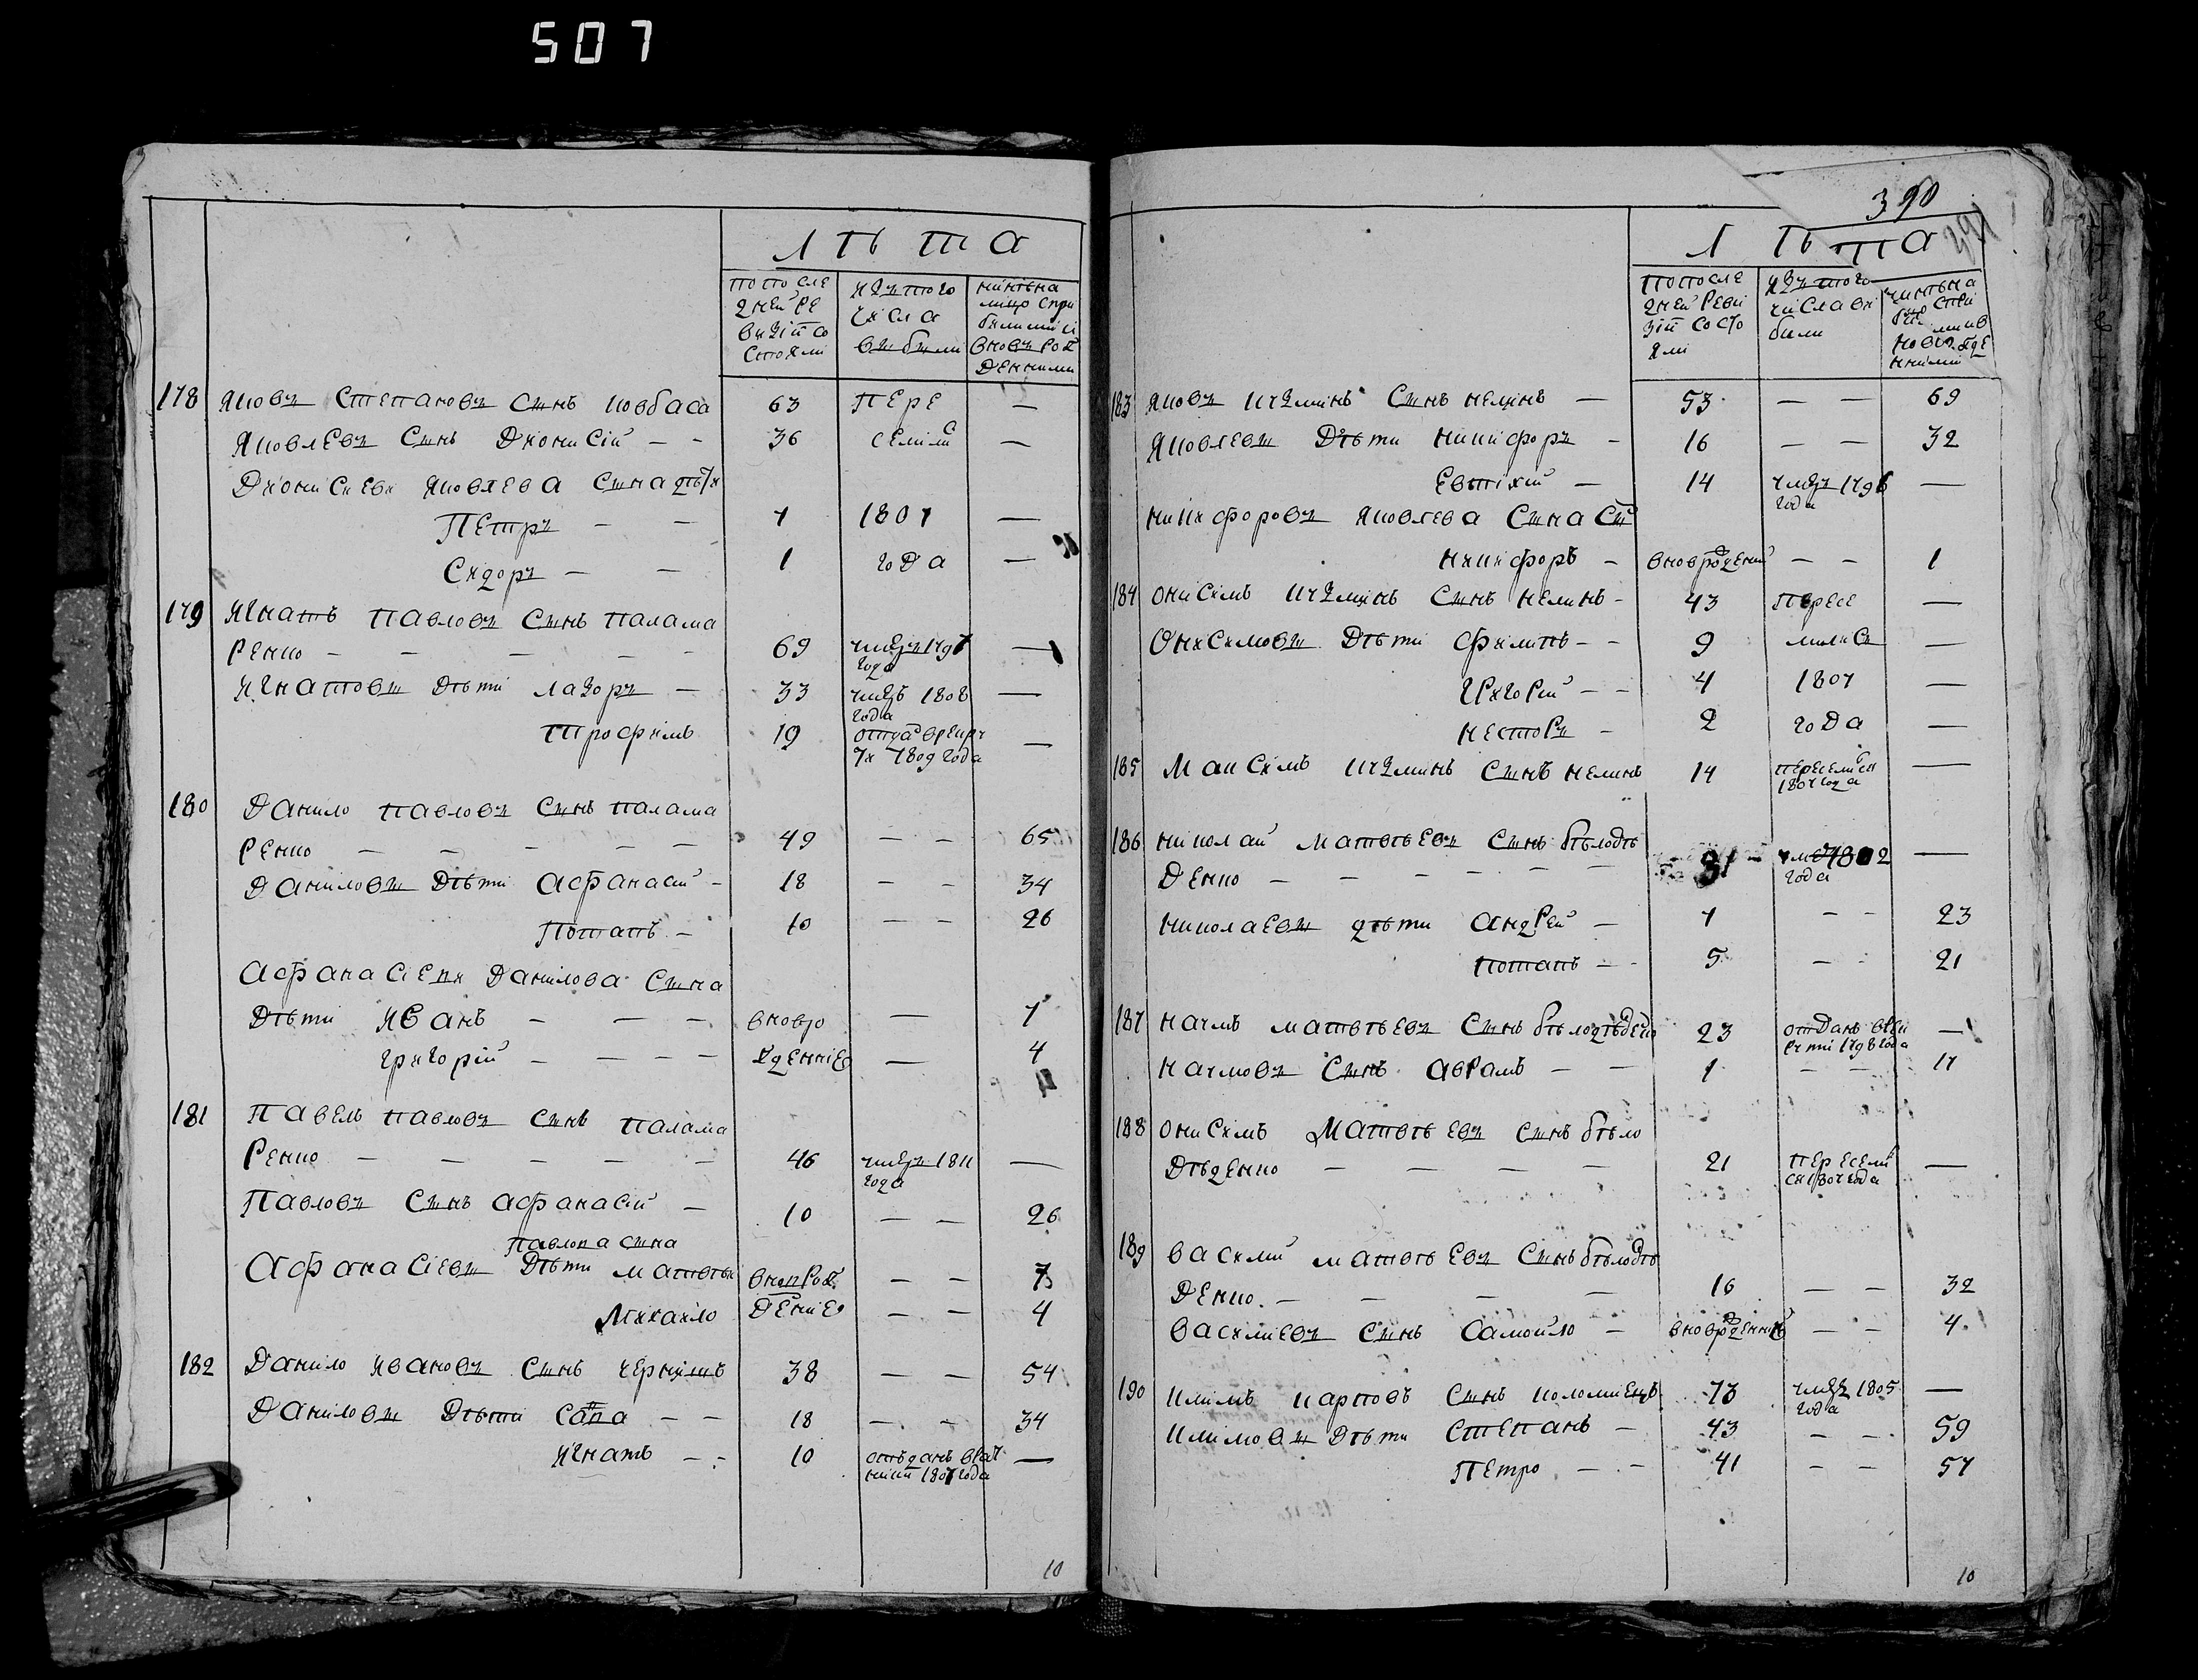 507
Лѣта
по после
дней ре
визiи со
стояли
изъ того
числа
выбыли
нинѣ на
лицо с при
былими и
вновъ рож
денними
178 Яковъ Степановъ сынъ Ковбаса 63 пере —
Яковлевъ сынъ Дионисiй — — 36 селилис —
Дионисиеви Яковлева сына дѣти
Петръ — — 7 1807 —
Сидоръ — — 1 года —
179 Игнатъ Павловъ сынъ Палама
ренко — — — — — 69 умеръ 1797 года —
Игнатовы дѣти Лазоръ — 33 умеръ 1808 года —
Трофимъ 19 отдан в рекру ти 1809 года —
180 Данило Павловъ сынъ Палама
ренко — — — — — 49 — — 65
Даниловы дѣти Афанасiй — 18 — — 34
Потапъ — 10 — — 26
Афанасiеви Данилова сына
Дѣти Иванъ — — — вновро — 7
Григорiй — — — — жденнiе — 4
181 Павелъ Павловъ сынъ Палама
ренко — — — — — 46 умеръ 1811 года —
Павловъ сынъ Афанасiй — 10 — — 26
Павлова сина
Афанасiевы дѣти Матвѣй вновъ рож — — 7
Михайло денiе — — 4
182 Данило Ивановъ сынъ Чернышъ 38 — — 54
Даниловы дѣти Сапа — — 18 — — 34
Игнатъ — — 10 отъданъ в рат ники 1807 года —
10
390
291
Лѣта
по после
дней реви
зiи состо
яли
изъ того
числа ви
били
183 Яковъ Кузминъ сынъ Нелинъ — 53 — — 69
Яковлевы дѣти Никифоръ — 16 — — 32
Евтихiй — 14 умеръ 1796 года —
Никифоровъ Яковлева сына сын
Никифоръ — вноврожденiй — — 1
184 Онисимъ Кузминъ сынъ Нелинъ — 43 пересе —
Онисимовы дѣти Филипъ — — 9 лилис —
Григорiй — — 4 1807 —
Несторъ — 2 года —
185 Максимъ Кузминъ сынъ Нелинъ 14 переселился 1807 года —
186 Николай Матвѣевъ сынъ Бѣлодѣ
денко — — — — — — 31 умер 1802 года —
Николаевы дѣти Андрей — 7 — — 23
Потапъ — — 5 — — 21
187 Наумъ Матвѣевъ сынъ Бѣлодѣденко 23 отданъ в рекрути 1798 года —
Наумовъ сынъ Аврамъ — — 1 — — 17
188 Онисимъ Матвѣевъ сынъ Бѣло
дѣденко — — — — 21 переселился 1807 года —
189 Василий Матвѣевъ сынъ Бѣлодѣ
денко — — — — 16 — — 32
Василиевъ сынъ Самойло — вноврожденнiй — — 4
190 Климъ Карповъ сынъ Коломиецъ 73 умеръ 1805 года —
Климовы дѣти Степанъ — 43 — — 59
Петро — — 41 — — 57
10